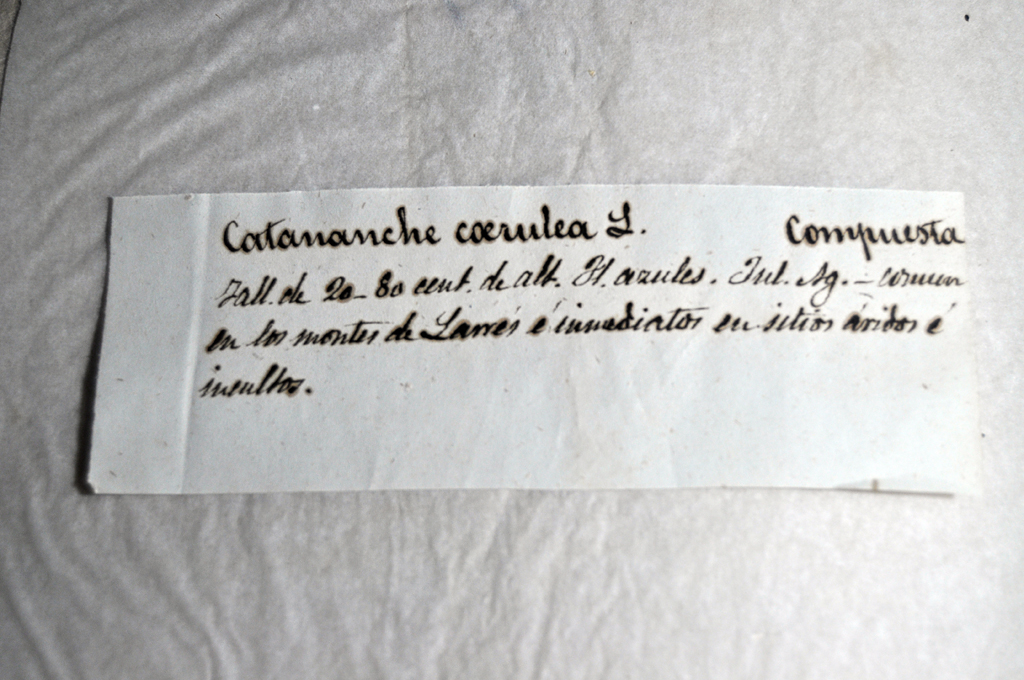 Catananche cœrulea L. Compuesta
Tall. de 20-80 cent. de alt. Fl. azules. Jul. Ag. – comun
en los montes de Larrés é inmediatos en sitios áridos é
incultos.